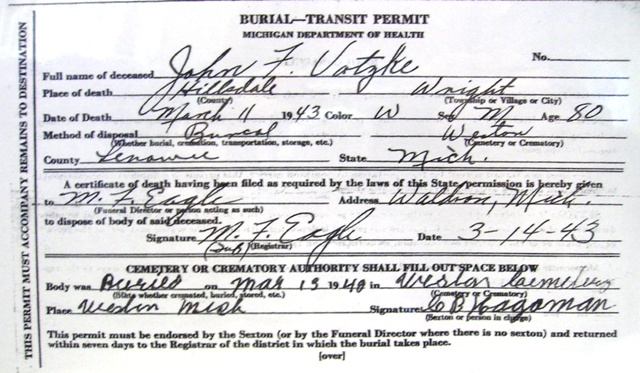 BURIAL—TRANSIT PERMIT
MICHIGAN DEPARTMENT OF HEALTH
No.
Full name of deceased John F. Votzke
Place of death Hillsdale Wright
(County) (Township or Village or City)
Date of Death March 11 1943 Color W Sex M Age 80
Method of disposal Burial Weston
(Whether burial, cremation, transportation, storage, etc.) (Cemetery or Crematory)
County Lenawee State Mich.
A certificate of death having been filed as required by the laws of this State, permission is hereby given
to M. F. Eagle Address Waldron, Mich.
(Funeral Director or person acting as such)
to dispose of body of said deceased.
Signature M. F. Eagle Date 3-14-43
(Sub) (Registrar)
CEMETERY OR CREMATORY AUTHORITY SHALL FILL OUT SPACE BELOW
Body was Buried on Mar 1940 in Weston Cemetery
(State whether cremated, buried, stored, etc.) (Cemetery or Crematory)
Place Weston Mich Signature Hagaman
(Sexton or person in charge)
This permit must be endorsed by the Sexton (or by the Funeral Director where there is no sexton) and returned
within seven days to the Registrar of the district in which the burial takes place.
[over]
THIS PERMIT MUST ACCOMPANY REMAINS TO DESTINATION